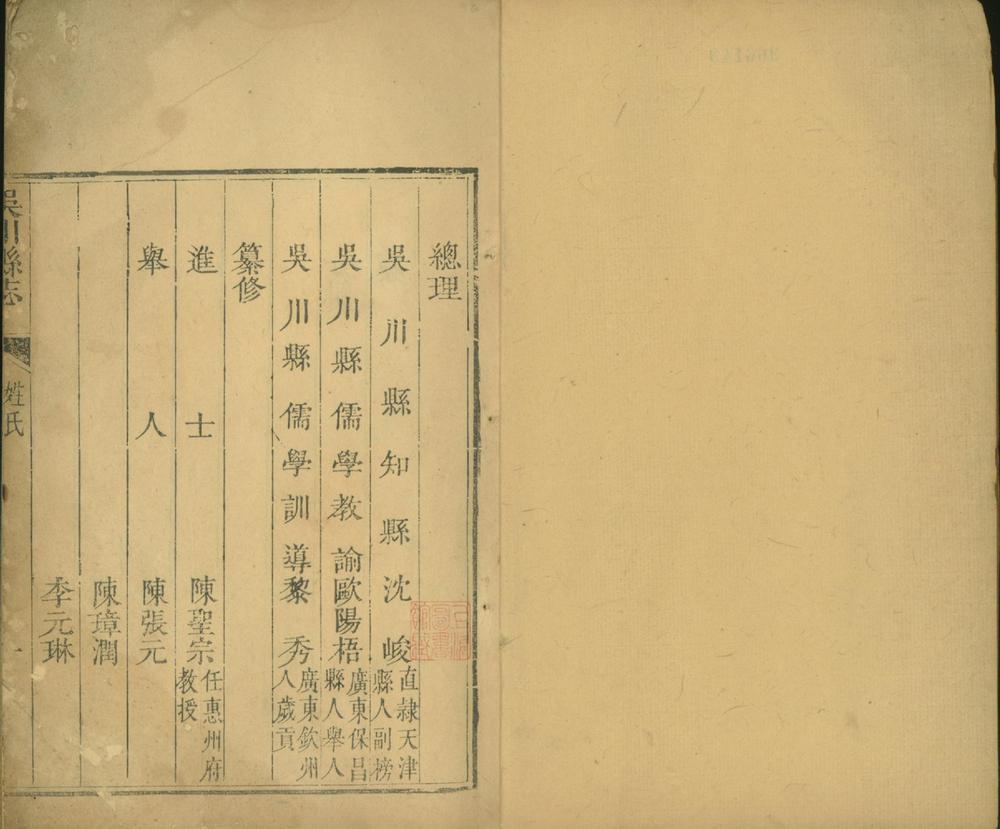 總理
吳川縣知縣沈峻直隷天津縣人副榜
吳川縣儒學教諭歐陽梧廣東保昌縣人舉人
吳川縣儒學訓導黎秀廣東欽州人歲貢
纂修
進士陳聖宗任惠州府教授
舉人陳張元
陳璋潤
李元琳
吳川縣志
姓氏
一